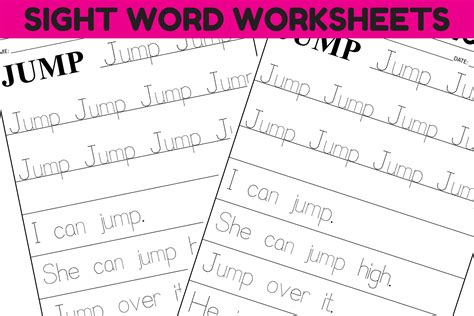 SIGHT WORD WORKSHEETS
JUMP Jump Jump
Jump Jump Jump Jump
Jump Jump Jump
I can jump.
She can jump high.
Jump over it.
DATE:
JUMP
Jump Jump Jump
Jump Jump Jump Jump
I can jump.
She can jump high.
Jump over it.